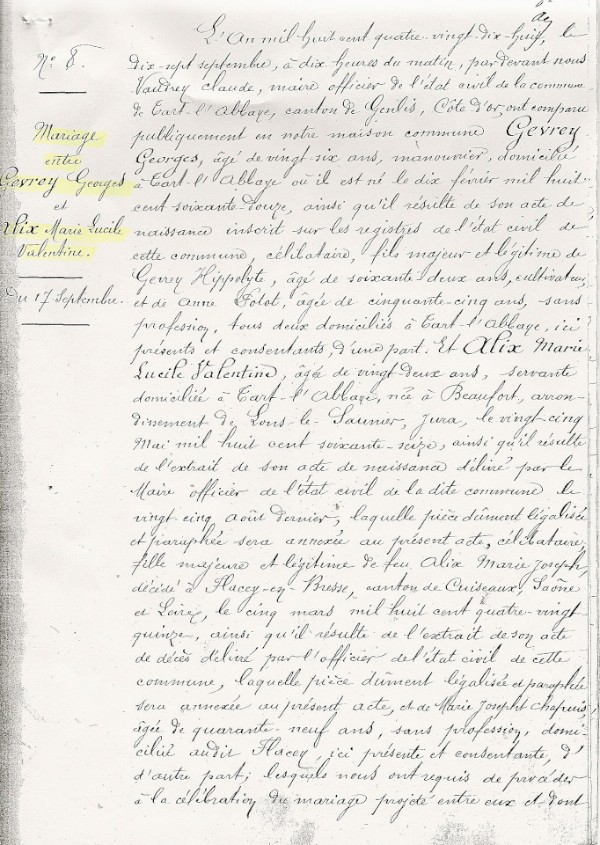 N° 8.
Mariage
entre
Gevrey Georges
et
Alix Marie Lucile
Valentine.
Du 17 Septembre.
L'An mil huit cent quatre-vingt-dix-huit, le
dix-sept septembre, à dix heures du matin, par devant nous
Vaudrey claude, maire officier de l'état civil de la commune
de Tart-l'Abbaye, canton de Genlis, Côte d'or, ont comparu
publiquement en notre maison commune Gevrey
Georges, âgé de vingt-six ans, manouvrier, domicilié
à Tart-l'Abbaye où il est né le dix février mil huit
cent soixante-douze, ainsi qu'il résulte de son acte de
naissance inscrit sur les registres de l'état civil de
cette commune, célibataire, fils majeur et légitime de
Gevrey Hippolyte, âgé de soixante-deux ans, cultivateur,
et de Anne Potot, âgée de cinquante-cinq ans, sans
profession, tous deux domiciliés à Tart-l'Abbaye, ici
présents et consentants, d'une part. Et Alix Marie
Lucile Valentine, âgée de vingt-deux ans, servante
domiciliée à Tart-l'Abbaye, née à Beaufort, arron-
dissement de Lons-le-Saunier, Jura, le vingt-cinq
Mai mil huit cent soixante-seize, ainsi qu'il résulte
de l'extrait de son acte de naissance délivré par le
Maire officier de l'état civil de la dite commune le
vingt-cinq août dernier, laquelle pièce dûment légalisée
et paraphée sera annexée au présent acte, célibataire,
fille majeure et légitime de feu Alix Marie Joseph,
décédé à Flacey-en-Bresse, canton de Cuiseaux, Saône
et Loire, le cinq mars mil huit cent quatre-vingt
quinze, ainsi qu'il résulte de l'extrait de son acte
de décès délivré par l'officier de l'état civil de cette
commune, laquelle pièce dûment légalisée et paraphée
sera annexée au présent acte, et de Marie Josepht Chapuis,
âgée de quarante-neuf ans, sans profession, domi-
ciliée audit Flacey, ici présente et consentante, d'
d'autre part; lesquels nous ont requis de procéder
à la célébration du mariage projeté entre eux et dont